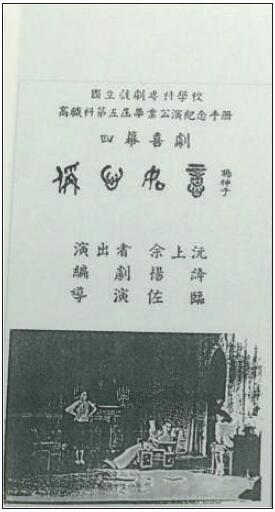 國立戲劇專科學校
高職科第五屆畢業公演紀念手冊
四幕喜劇
稱心如意
楊仲子
演出者 余上沅
編劇 楊絳
導演 佐臨